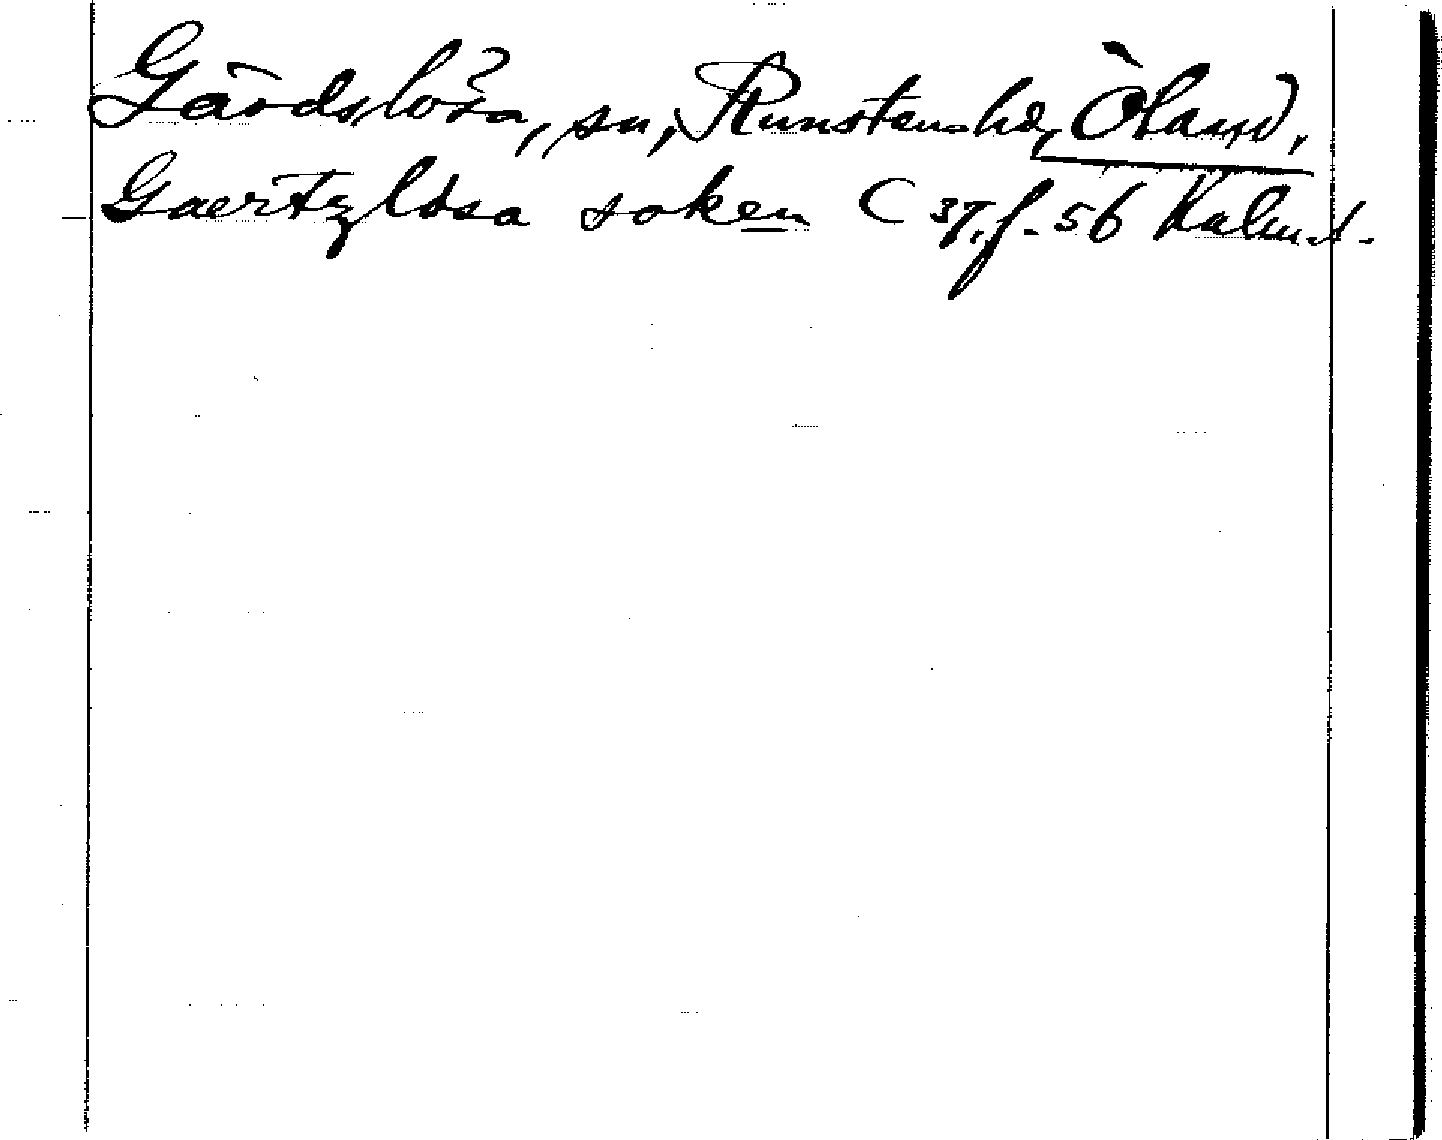 Gärdslösa, sn, Runstens hd, Öland.
Gaertzlösa soken C 37, f. 56 Kalm.